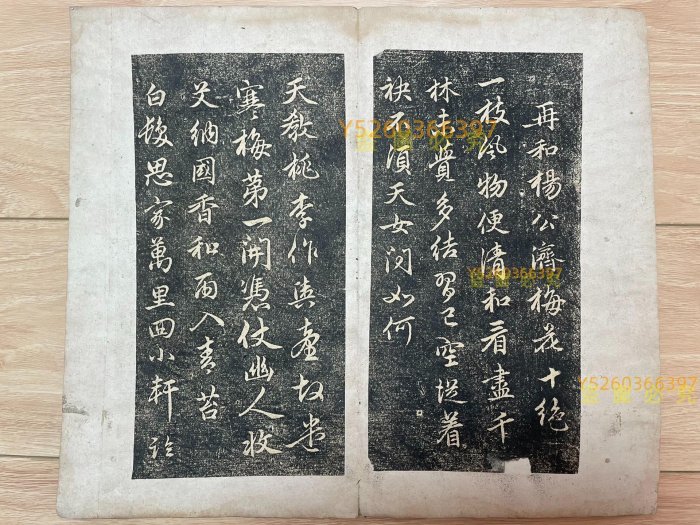 再和楊公濟梅花十絕
一枝風物便清和看盡千
林未覺多結習已空從着
袂不須天女問如何
天教桃李作輿臺故遣
寒梅第一開憑仗幽人收
艾納國香和雨入青苔
白髮思家萬里回小軒臨
Y5260366397
Y5260366397
Y5260366397